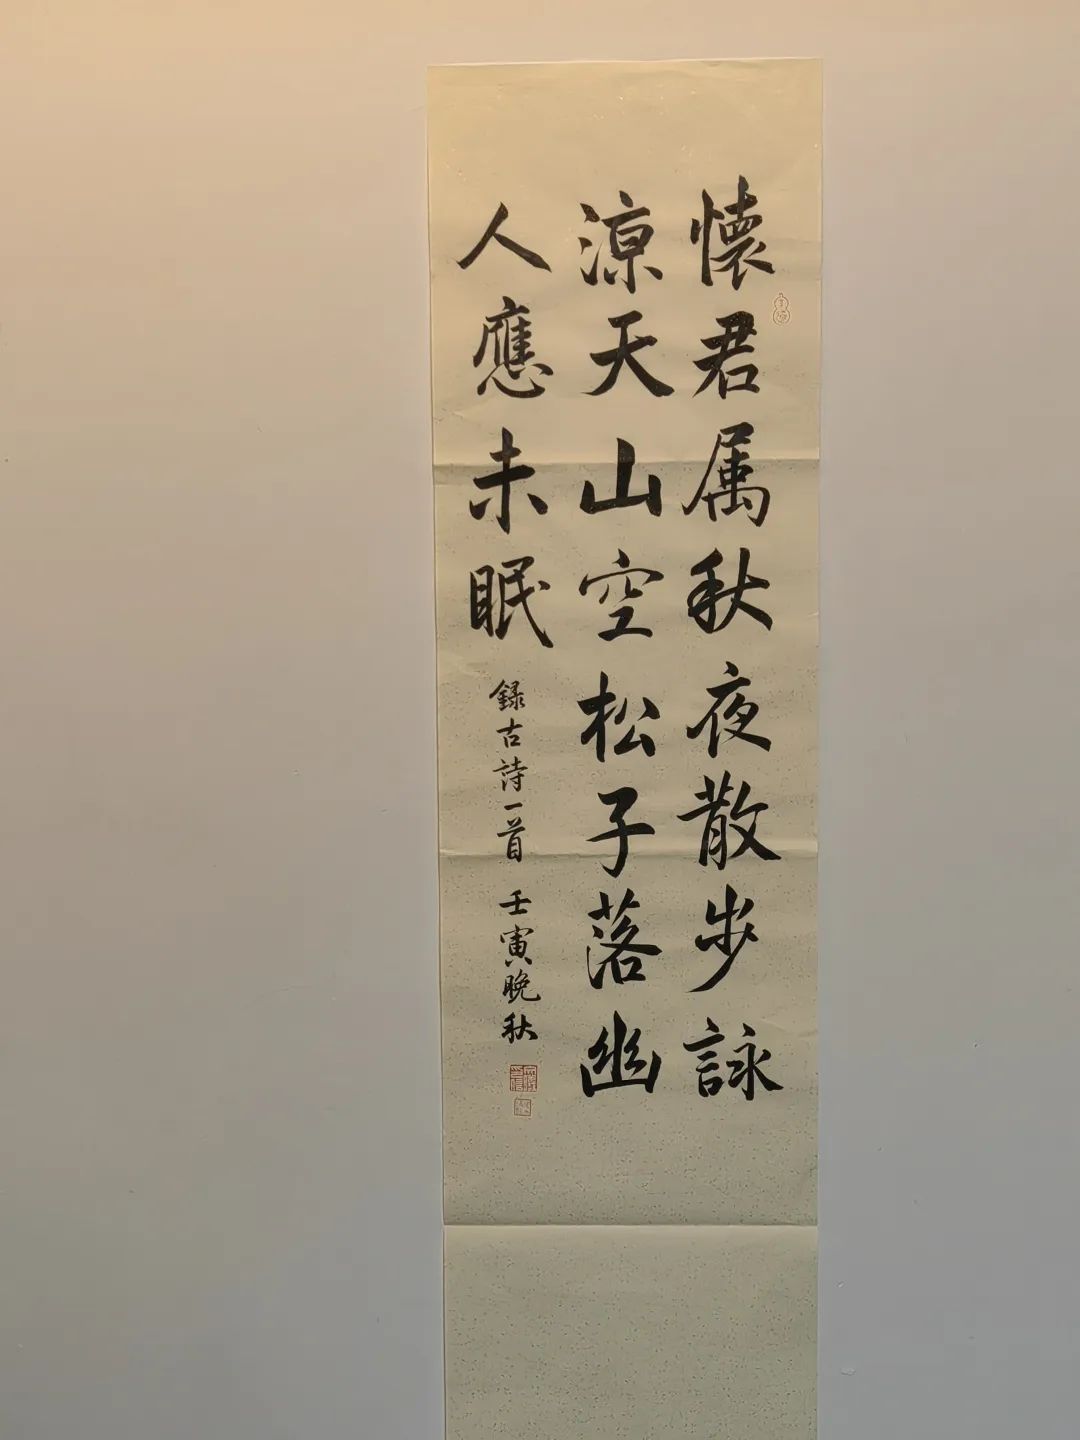 懷君属秋夜散步詠
涼天山空松子落幽
人應未眠
録古詩一首 壬寅晚秋